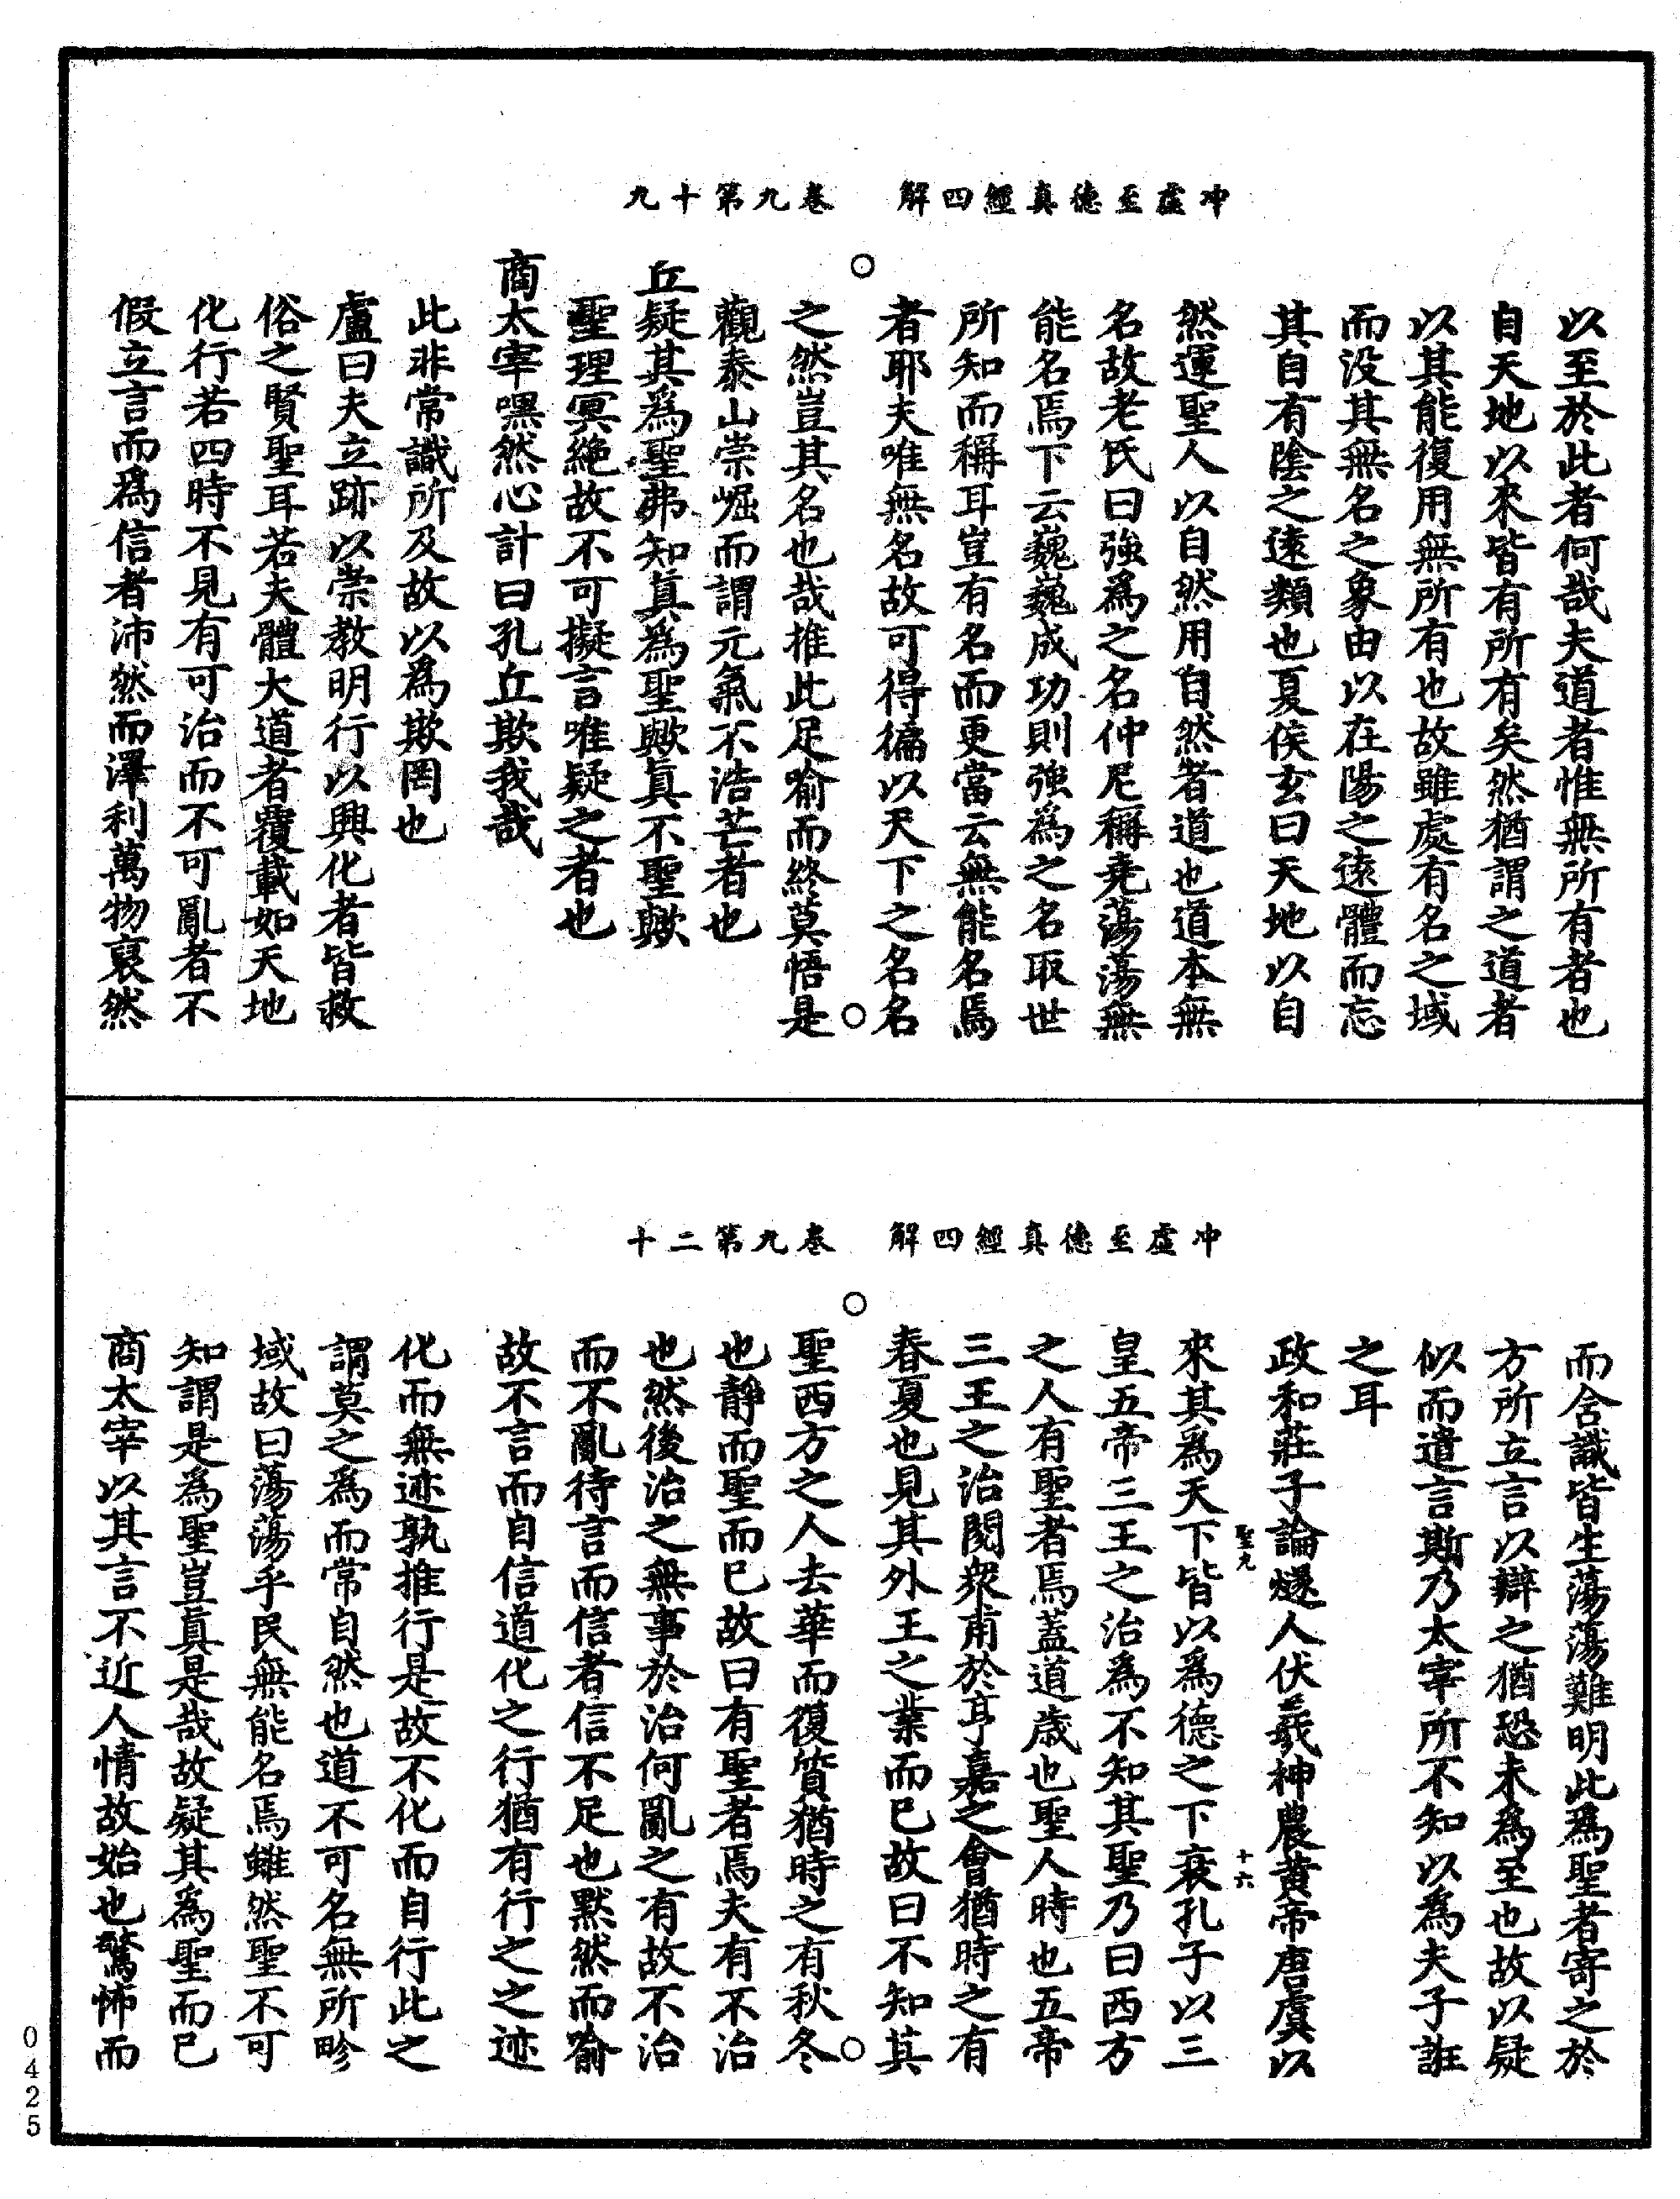 冲虛至德真經四解　卷九第十九
以至於此者何哉夫道者惟無所有者也
自天地以來皆有所有矣然猶謂之道者
以其能復用無所有也故雖處有名之域
而没其無名之象由以在陽之遠體而忘
其自有陰之遠類也夏侯玄曰天地以自
然運聖人以自然用自然者道也道本無
名故老氏曰強爲之名仲尼稱堯蕩蕩無
能名焉下云巍巍成功則強爲之名取世
所知而稱耳豈有名而更當云無能名焉
者耶夫唯無名故可得徧以天下之名名
之然豈其名也哉推此足喻而終莫悟是
觀泰山崇崛而謂元氣不浩芒者也
丘疑其爲聖弗知真爲聖歟真不聖歟
聖理冥絶故不可擬言唯疑之者也
商太宰嘿然心計曰孔丘欺我哉
此非常識所及故以爲欺罔也
盧曰夫立跡以崇教明行以興化者皆救
俗之賢聖耳若夫體大道者覆載如天地
化行若四時不見有可治而不可亂者不
假立言而爲信者沛然而澤利萬物裒然
冲虛至德真經四解　卷九第二十
而含識皆生蕩蕩難明此爲聖者寄之於
方所立言以辯之猶恐未爲至也故以疑
似而遣言斯乃太宰所不知以爲夫子誑
之耳
政和莊子論燧人伏羲神農黄帝唐虞以
聖九　十六
來其爲天下皆以爲德之下衰孔子以三
皇五帝三王之治爲不知其聖乃曰西方
之人有聖者焉蓋道歲也聖人時也五帝
三王之治閱衆甫於亨嘉之會猶時之有
春夏也見其外王之業而已故曰不知其
聖西方之人去華而復質猶時之有秋冬
也靜而聖而已故曰有聖者焉夫有不治
也然後治之無事於治何亂之有故不治
而不亂待言而信者信不足也默然而喻
故不言而自信道化之行猶有行之之迹
化而無迹孰推行是故不化而自行此之
謂莫之爲而常自然也道不可名無所畛
域故曰蕩蕩乎民無能名焉雖然聖不可
知謂是爲聖豈真是哉故疑其爲聖而已
商太宰以其言不近人情故始也驚怖而
0425